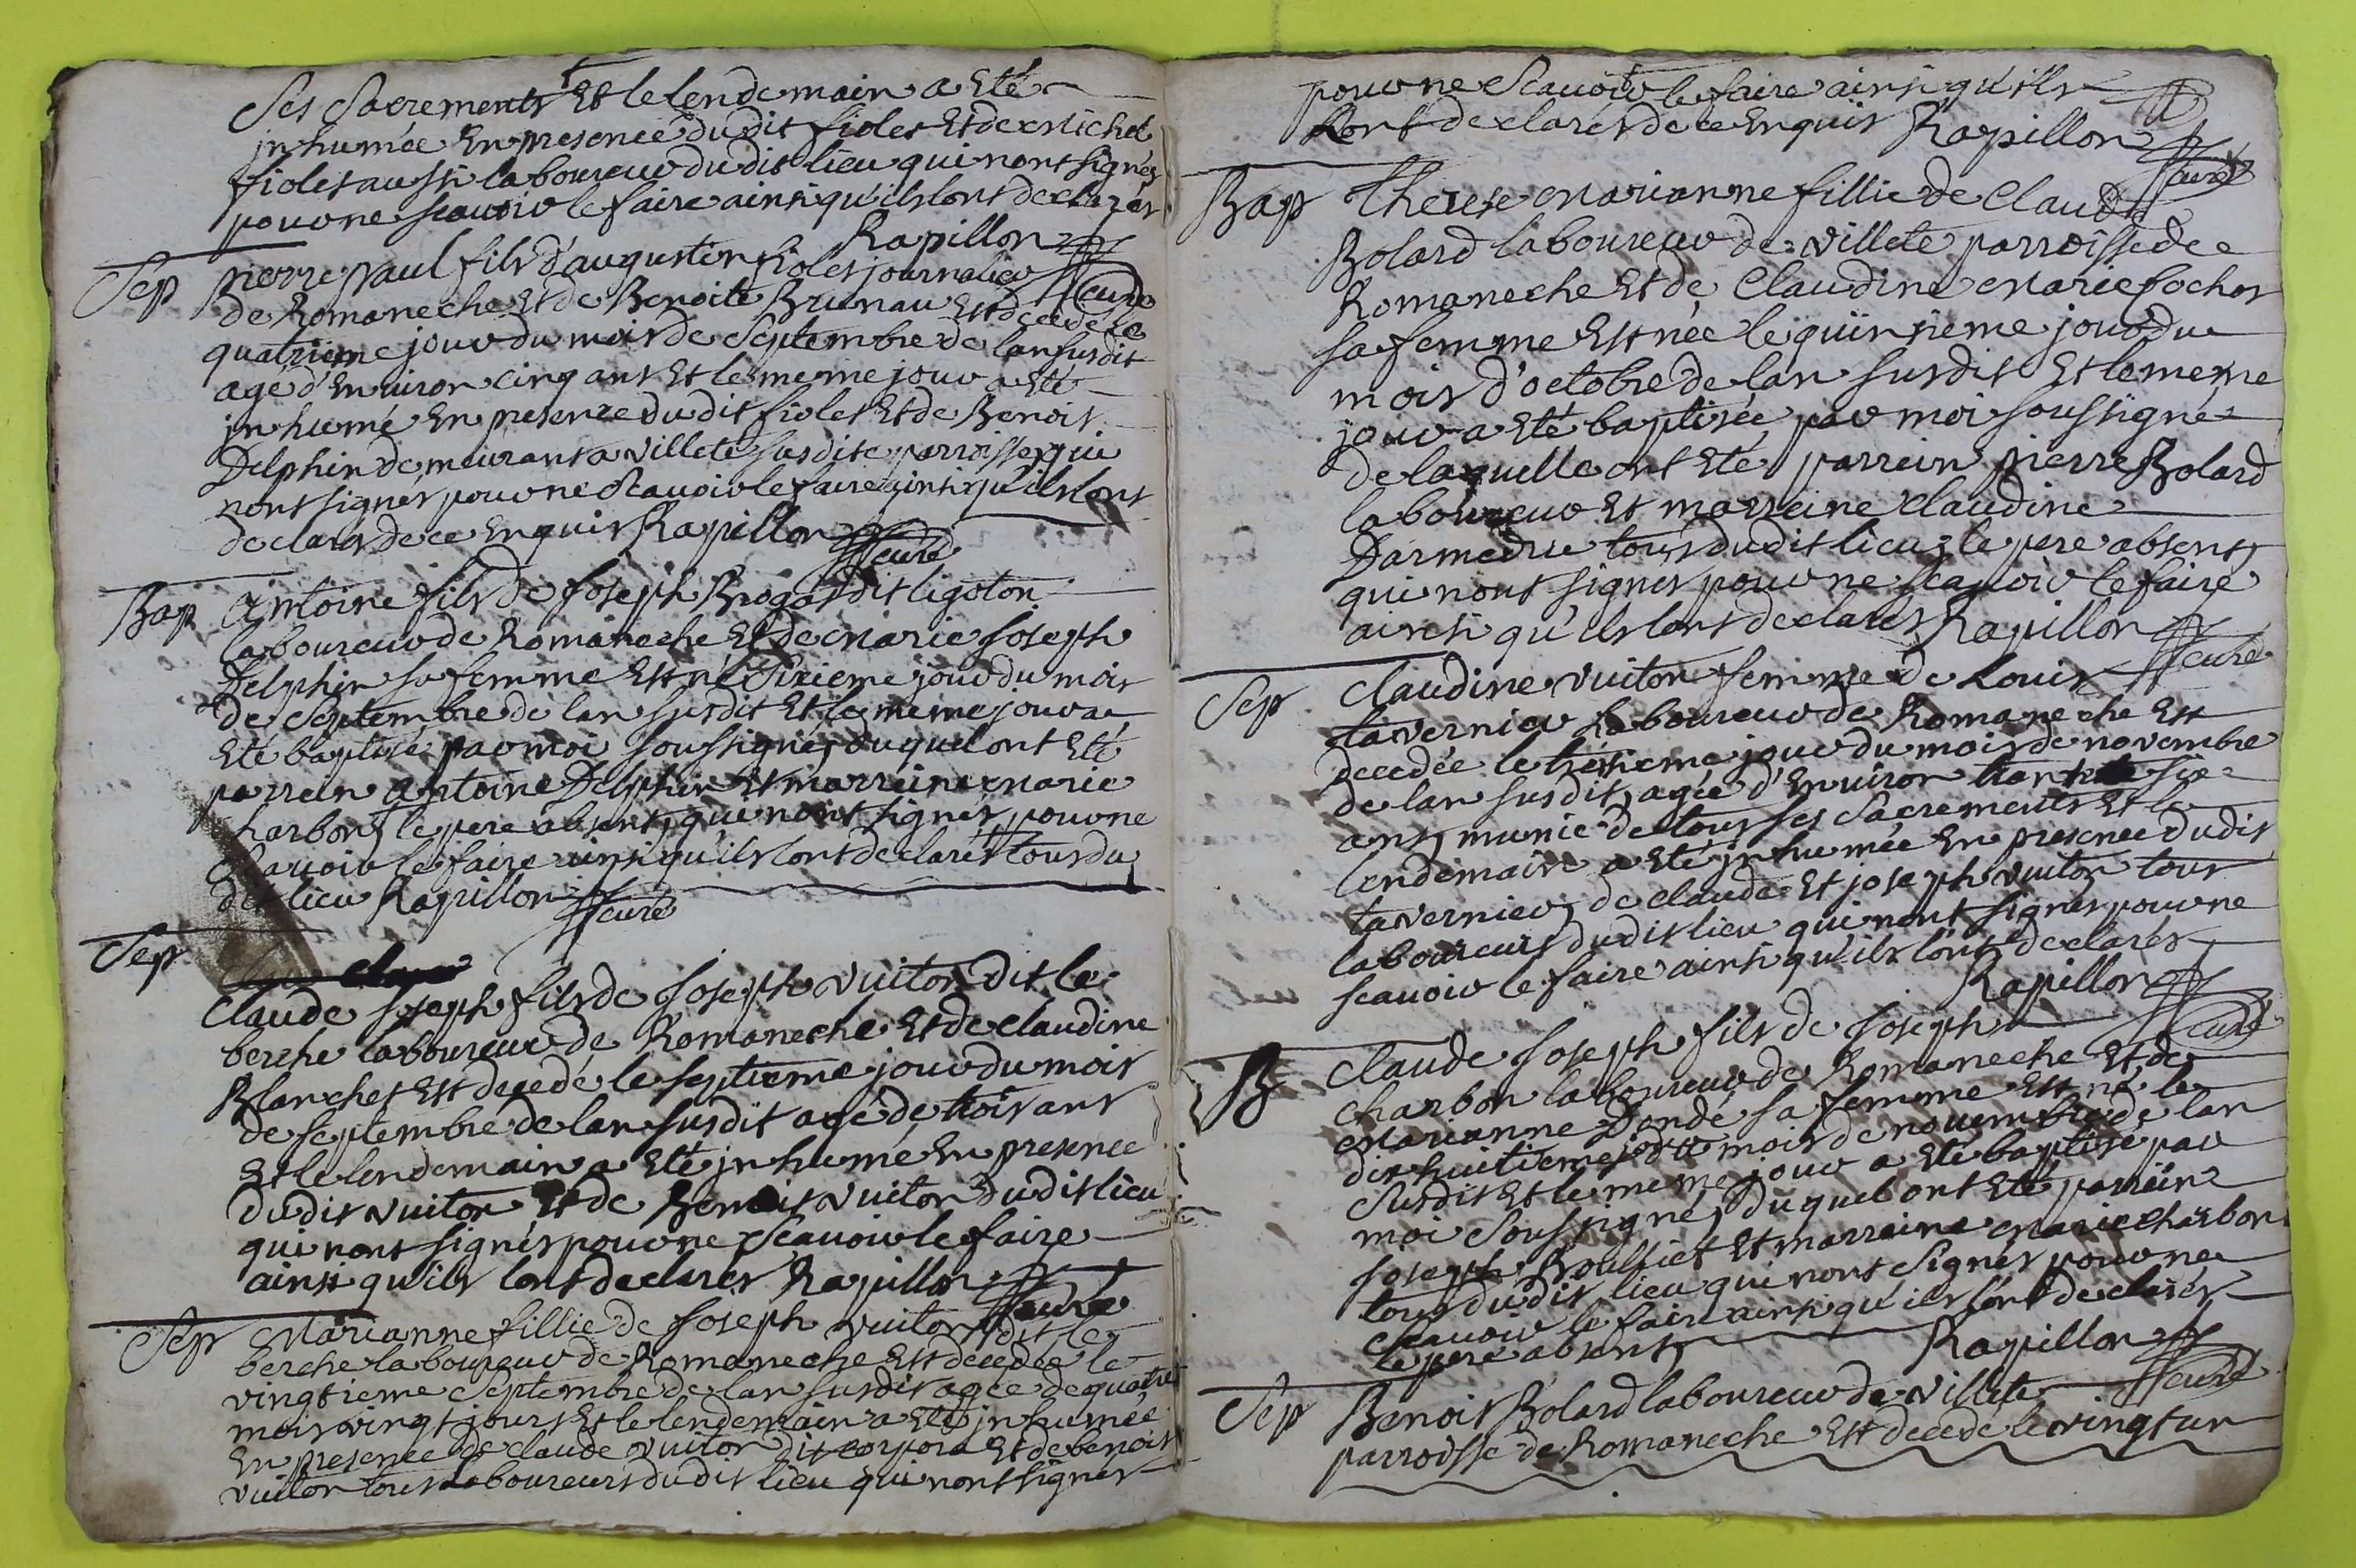 Ses Sacrements Et le lendemain a Eté
jnhumée En presence dudit fiolet Et de michel
fiolet aussi laboureur dudit lieu qui nont signés
pour ne scauoir le faire ainsi qu'ils lont declarés
Rapillon curé
Sep pierre paul fils d'augustin fiolet journalier
de Romaneche Et de Benoite Brunau Est decedé le
quatrieme jour du mois de Septembre de lan susdit
agé d'Enuiron cinq ans Et le meme jour a Eté
jnhumé En presence dudit fiolet Et de Benoit
Delphin demeurant a villete susdite parroisse qui
nont signés pour ne Scauoir le faire ainsi qu'ils lont
declarés de ce Enquis Rapillon curé
Bap Antoine fils de Joseph Brogat dit ligoton
laboureur de Romaneche Et de marie Joseph
Delphin sa femme Est né Sixieme jour du mois
de Septembre de lan susdit Et le meme jour a
Eté baptisé par moi soussigné, duquel ont Eté
parrein antoine Delphin Et marreine marie
charbon, le pere absent, qui nont signés pour ne
Scauoir le faire ainsi qu'ils lont declarés tous du
dit lieu Rapillon curé
Sep
Claude Joseph fils de Joseph vuiton dit le
berche laboureur de Romaneche Et de claudine
Blanchet Est decedé le septieme jour du mois
de septembre de lan susdit agé de trois ans
Et le lendemain a Eté jnhumé En presence
dudit vuiton Et de Benoit vuiton dudit lieu
qui nont signés pour ne Scauoir le faire
ainsi qu'ils lont declarés Rapillon curé
Sep Marianne fillie de Joseph vuiton dit le
berche laboureur de Romaneche Est decedée le
vingtieme Septembre de lan susdit agée de quatre
mois vingt jours Et le lendemain a Eté jnhumée
En presence de claude vuiton dit Et de benoit
vuiton tous laboureurs dudit lieu qui nont signés
pour ne Scauoir le faire ainsi qu'ils
lont declarés de ce Enquis Rapillon curé
Bap Therese marianne fillie de Claude
Bolard laboureur de villete parroisse de
Romaneche Et de Claudine marie fochot
sa femme Est née le quinsieme jour du
mois d'octobre de lan susdit Et le meme
jour a Eté baptisée par moi soussigné
de laquelle ont Eté parrein pierre Bolard
laboureur Et marreine claudine
Darmedru tous dudit lieu, le pere absent,
qui nont signés pour ne scauoir le faire
ainsi qu'ils lont declarés Rapillon curé
Sep Claudine vuiton femme de Louis
tavernier laboureur de Romaneche Est
decedée le tresieme jour du mois de novembre
de lan susdit, agée d'Enuiron trante six
ans, munie de tous ses Sacrements Et le
lendemain a Eté jnhumée En presence dudit
tavernier, de claude Et joseph vuiton tous
laboureurs dudit lieu qui nont signés pour ne
scauoir le faire ainsi qu'ils lont declarés
Rapillon curé
B Claude Joseph fils de Joseph
charbon laboureur de Romaneche Et de
marianne Dondé sa femme Est né le
dix huitieme jour mois de novembre de lan
Susdit Et le meme jour a Eté baptisé par
moi soussigné, duquel ont Eté parrein
joseph Et marraine marie charbon
tous dudit lieu qui nont signés pour ne
Scauoir le faire ainsi qu'ils lont declarés
le pere absent, Rapillon curé
Sep Benoit Bolard laboureur de villete
parroisse de Romaneche Est decedé le vingt un